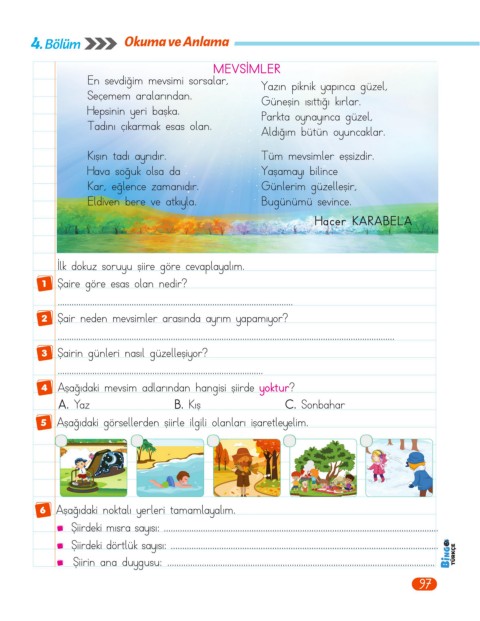 4. Bölüm
Okuma ve Anlama
MEVSİMLER
En sevdiğim mevsimi sorsalar,
Seçemem aralarından.
Hepsinin yeri başka.
Tadını çıkarmak esas olan.
Kışın tadı ayrıdır.
Hava soğuk olsa da
Kar, eğlence zamanıdır.
Eldiven bere ve atkıyla.
Yazın piknik yapınca güzel,
Güneşin ısıttığı kırlar.
Parkta oynayınca güzel,
Aldığım bütün oyuncaklar.
Tüm mevsimler eşsizdir.
Yaşamayı bilince
Günlerim güzelleşir,
Bugünümü sevince.
Hacer KARABELA
İlk dokuz soruyu şiire göre cevaplayalım.
1 Şaire göre esas olan nedir?
2 Şair neden mevsimler arasında ayrım yapamıyor?
3 Şairin günleri nasıl güzelleşiyor?
4 Aşağıdaki mevsim adlarından hangisi şiirde yoktur?
A. Yaz B. Kış C. Sonbahar
5 Aşağıdaki görsellerden şiirle ilgili olanları işaretleyelim.
6 Aşağıdaki noktalı yerleri tamamlayalım.
Şiirdeki mısra sayısı:
Şiirdeki dörtlük sayısı:
Şiirin ana duygusu:
BİNGO
TÜRKÇE
97